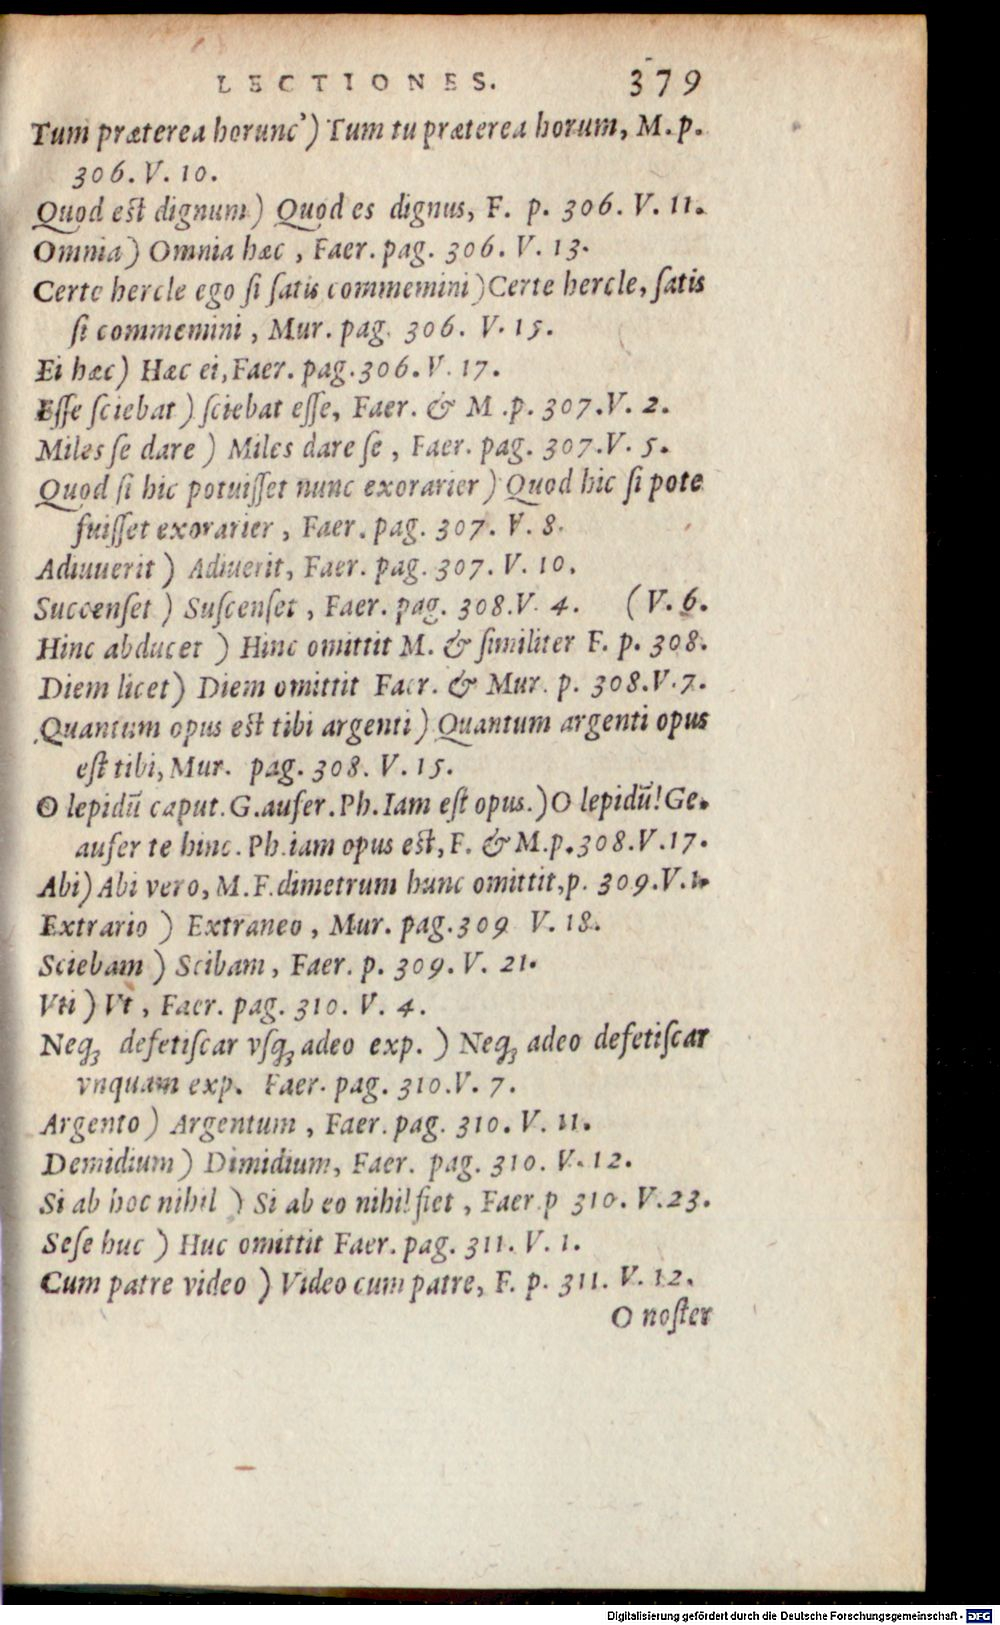 LECTIONES. 379
Tum præterea horunc') Tum tu præterea horum, M. p.
306. V. 10.
Quod est dignum) Quod es dignus, F. p. 306. V. 11.
Omnia) Omnia hæc , Faer. pag. 306. V. 13.
Certe hercle ego si ſatis commemini) Certe hercle, ſatis
ſi commemini , Mur. pag. 306. V. 15.
Ei hæc) Hæc ei, Faer. pag. 306. V. 17.
Eſſe ſciebat) ſciebat eſſe, Faer. & M .p. 307.V. 2.
Miles ſe dare ) Miles dare ſe , Faer. pag. 307.V. 5.
Quod ſi hic potuiſſet nunc exorarier) Quod hic ſi pote
fuiſſet exorarier , Faer. pag. 307. V. 8.
Adiuuerit ) Adiuerit, Faer. pag. 307. V. 10.
Succenſet ) Suſcenſet , Faer. pag. 308.V. 4. (V. 6.
Hinc abducet ) Hinc omittit M. & ſimiliter F. p. 308.
Diem licet) Diem omittit Faer. & Mur. p. 308.V.7.
Quantum opus est tibi argenti) Quantum argenti opus
eſt tibi, Mur. pag. 308. V. 15.
O lepidū caput. G. aufer. Ph. Iam eſt opus.) O lepidū! Ge.
aufer te hinc. Ph. iam opus est, F. & M.p. 308.V.17.
Abi) Abi vero, M. F. dimetrum hunc omittit, p. 309.V.1.
Extrario ) Extraneo , Mur. pag. 309 V. 18.
Sciebam ) Scibam, Faer. p. 309. V. 21.
Vti ) Vt , Faer. pag. 310. V. 4.
Neqꝫ defetiſcar vſqꝫ adeo exp. ) Neqꝫ adeo defetiſcar
vnquam exp. Faer. pag. 310.V. 7.
Argento ) Argentum , Faer. pag. 310. V. 11.
Demidium ) Dimidium, Faer. pag. 310. V. 12.
Si ab hoc nihil ) Si ab eo nihil fiet , Faer. p 310. V.23.
Seſe huc ) Huc omittit Faer. pag. 311. V. 1.
Cum patre video ) Video cum patre, F. p. 311. V. 12.
O noſter
Digitalisierung gefördert durch die Deutsche Forschungsgemeinschaft - DFG